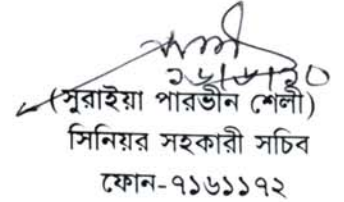 (সুরাইয়া পারভীন শেলী)
সিনিয়র সহকারী সচিব
ফোন-৭১৬১১৭২